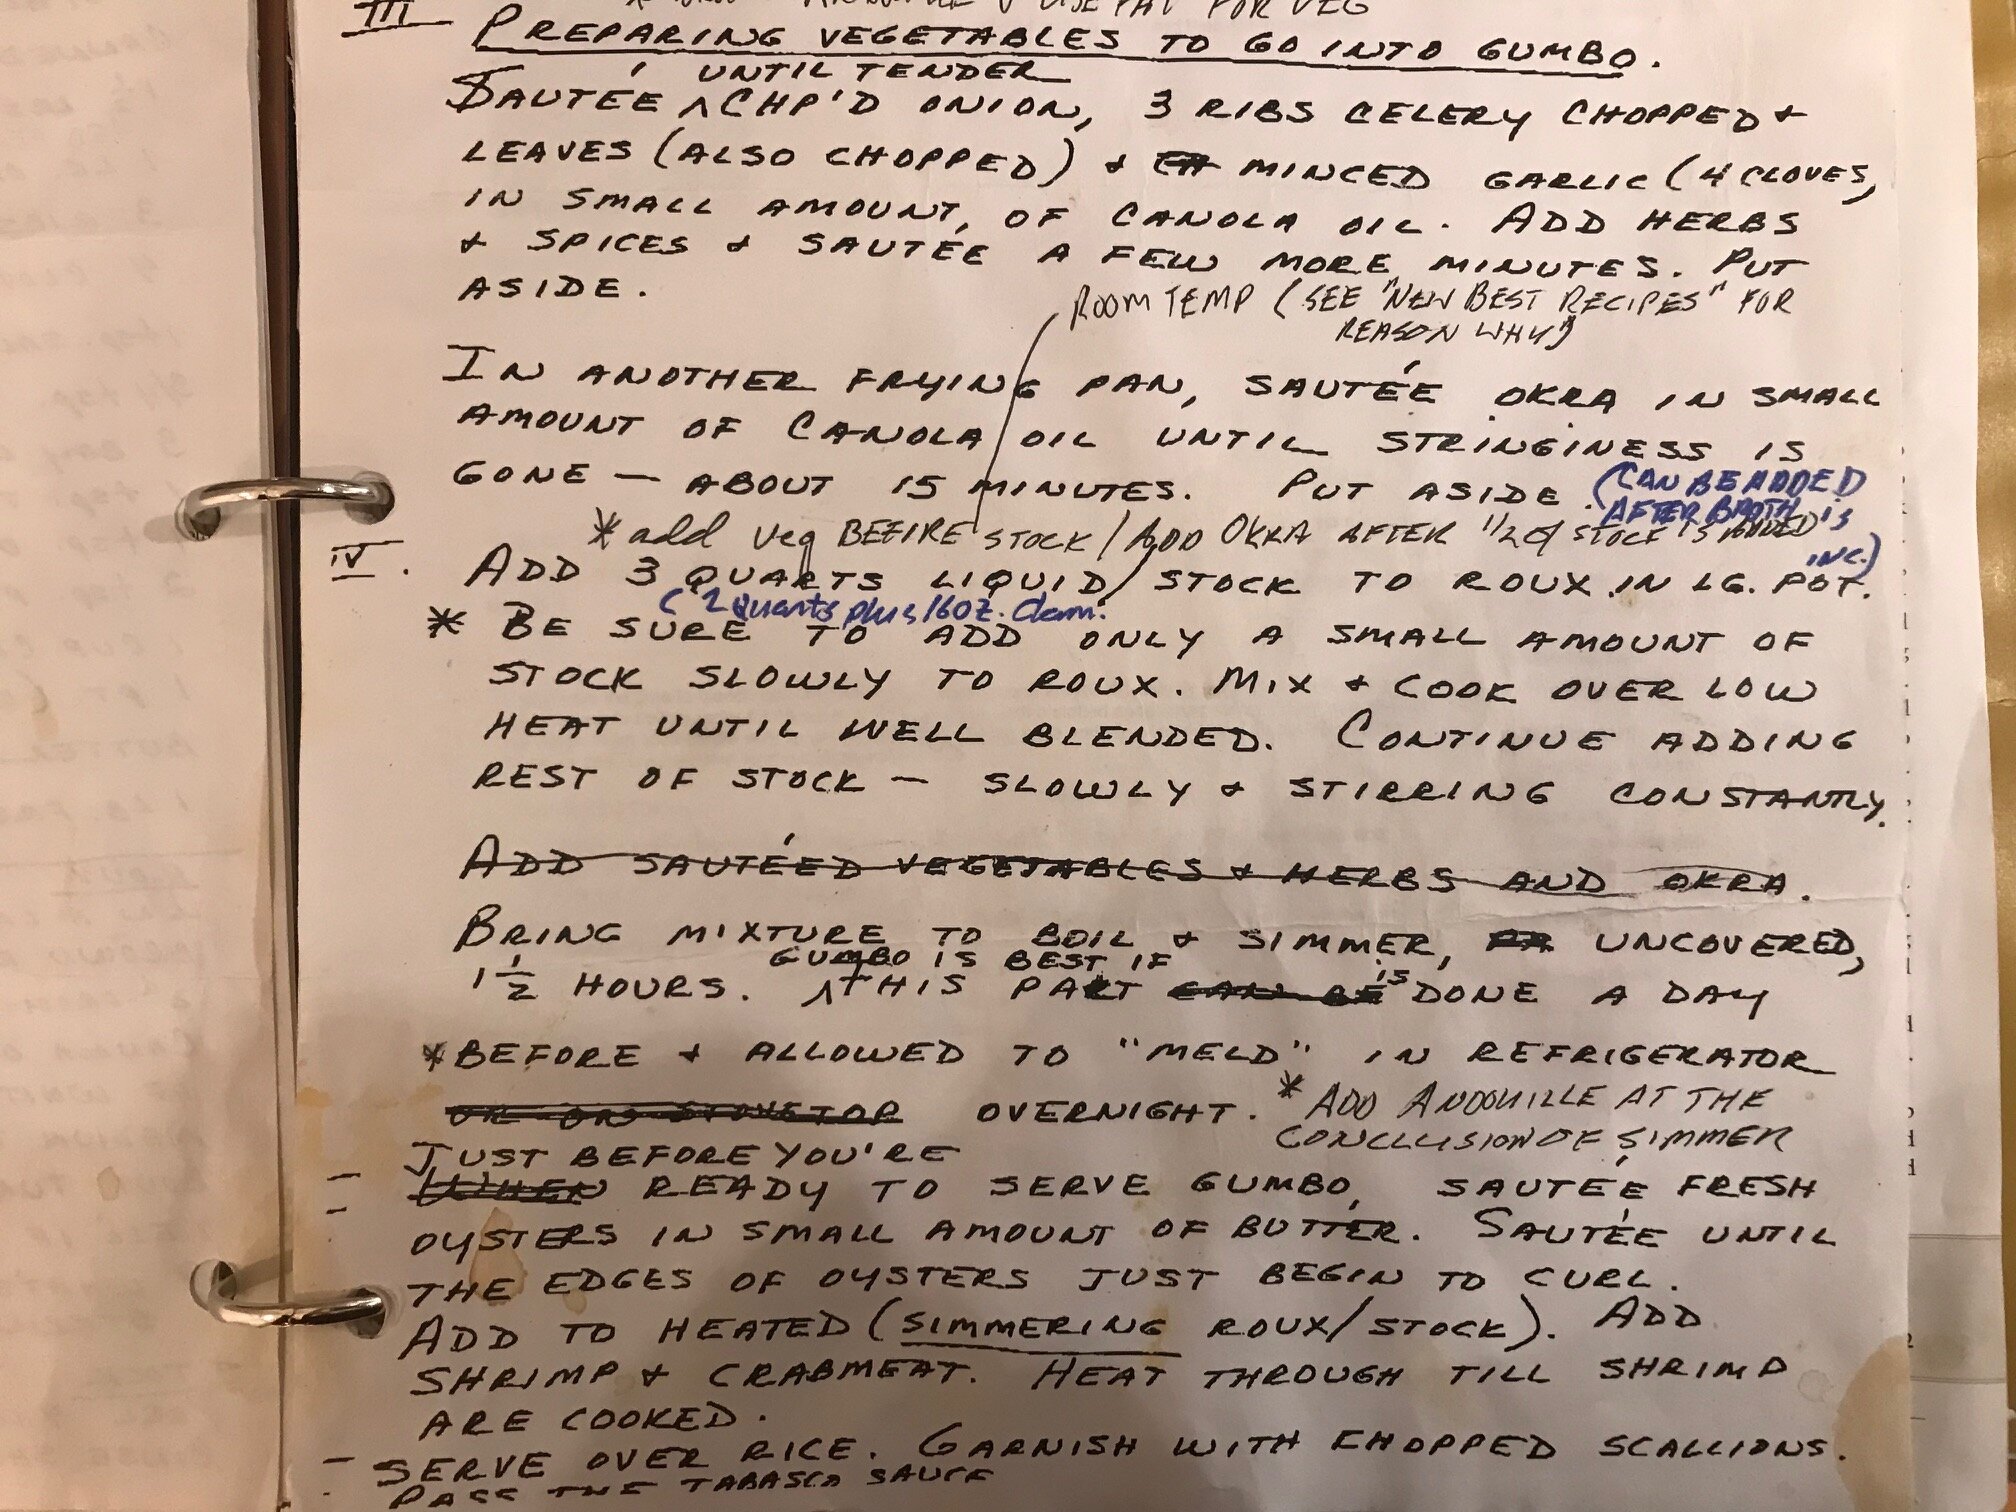 USE FAT FOR VEG
III PREPARING VEGETABLES TO GO INTO GUMBO.
UNTIL TENDER
SAUTÉE ^ CHP'D ONION, 3 RIBS CELERY CHOPPED &
LEAVES (ALSO CHOPPED) & MINCED GARLIC (4 CLOVES,
IN SMALL AMOUNT, OF CANOLA OIL. ADD HERBS
& SPICES & SAUTÉE A FEW MORE MINUTES. PUT
ASIDE.
ROOM TEMP (SEE "NEW BEST RECIPES" FOR
REASON WHY)
IN ANOTHER FRYING PAN, SAUTÉE OKRA IN SMALL
AMOUNT OF CANOLA OIL UNTIL STRINGINESS IS
GONE — ABOUT 15 MINUTES. PUT ASIDE. (CAN BE ADDED
AFTER BROTH is
* add veg BEFIRE STOCK / ADD OKRA AFTER 1/2 of STOCK IS ADDED
INC.)
IV. ADD 3 QUARTS LIQUID/STOCK TO ROUX IN LG. POT.
(2 Quarts plus 16 oz. Clam.
* BE SURE TO ADD ONLY A SMALL AMOUNT OF
STOCK SLOWLY TO ROUX. MIX & COOK OVER LOW
HEAT UNTIL WELL BLENDED. CONTINUE ADDING
REST OF STOCK — SLOWLY & STIRRING CONSTANTLY.
ADD SAUTÉED VEGETABLES & HERBS AND OKRA.
BRING MIXTURE TO BOIL & SIMMER, UNCOVERED,
GUMBO IS BEST IF
1 1/2 HOURS. ^ THIS PART CAN BE IS DONE A DAY
* BEFORE & ALLOWED TO "MELD" IN REFRIGERATOR
OR ON STOVETOP OVERNIGHT. * ADD ANDOUILLE AT THE
CONCLUSION OF SIMMER
JUST BEFORE YOU'RE
— WHEN READY TO SERVE GUMBO, SAUTÉE FRESH
OYSTERS IN SMALL AMOUNT OF BUTTER. SAUTÉE UNTIL
THE EDGES OF OYSTERS JUST BEGIN TO CURL.
ADD TO HEATED (SIMMERING ROUX/STOCK). ADD
SHRIMP & CRABMEAT. HEAT THROUGH TILL SHRIMP
ARE COOKED.
— SERVE OVER RICE. GARNISH WITH CHOPPED SCALLIONS.
PASS THE TABASCO SAUCE